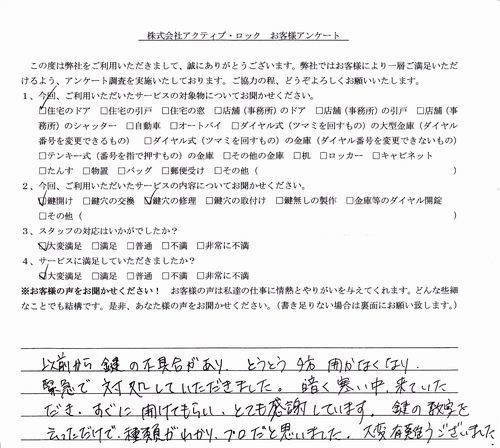 株式会社アクティブ・ロック　お客様アンケート
この度は弊社をご利用いただきまして、誠にありがとうございます。弊社ではお客様により一層ご満足いただ
けるよう、アンケート調査を実施いたしております。ご協力の程、どうぞよろしくお願いいたします。
1、今回、ご利用いただいたサービスの対象物についてお聞かせください。
☑住宅のドア　□住宅の引戸　□住宅の窓　□店舗（事務所）のドア　□店舗（事務所）の引戸　□店舗（事
務所）のシャッター　□自動車　□オートバイ　□ダイヤル式（ツマミを回すもの）の大型金庫（ダイヤル
番号を変更できるもの）　□ダイヤル式（ツマミを回すもの）の金庫（ダイヤル番号を変更できないもの）
□テンキー式（番号を指で押すもの）の金庫　□その他の金庫　□机　□ロッカー　□キャビネット
□たんす　□物置　□バッグ　□郵便受け　□その他（　　）
2、今回、ご利用いただいたサービスの内容についてお聞かせください。
☑鍵開け　□鍵穴の交換　☑鍵穴の修理　□鍵穴の取付け　□鍵無しの製作　□金庫等のダイヤル開錠
□その他（　　）
3、スタッフの対応はいかがでしたか？
☑大変満足　□満足　□普通　□不満　□非常に不満
4、サービスに満足していただきましたか？
☑大変満足　□満足　□普通　□不満　□非常に不満
※お客様の声をお聞かせください！　お客様の声は私達の仕事に情熱とやりがいを与えてくれます。どんな些細
なことでも結構です。是非、あなた様の声をお聞かせください。（書き足りない場合は裏面にお願い致します。）
以前から鍵の不具合があり、とうとう夕方開かなくなり、
緊急で対処していただきました。暗く寒い中、来ていた
だき、すぐに開けてもらい、とても感謝しています。鍵の
言っただけで、種類がわかり、プロだと思いました。大変有難うございました